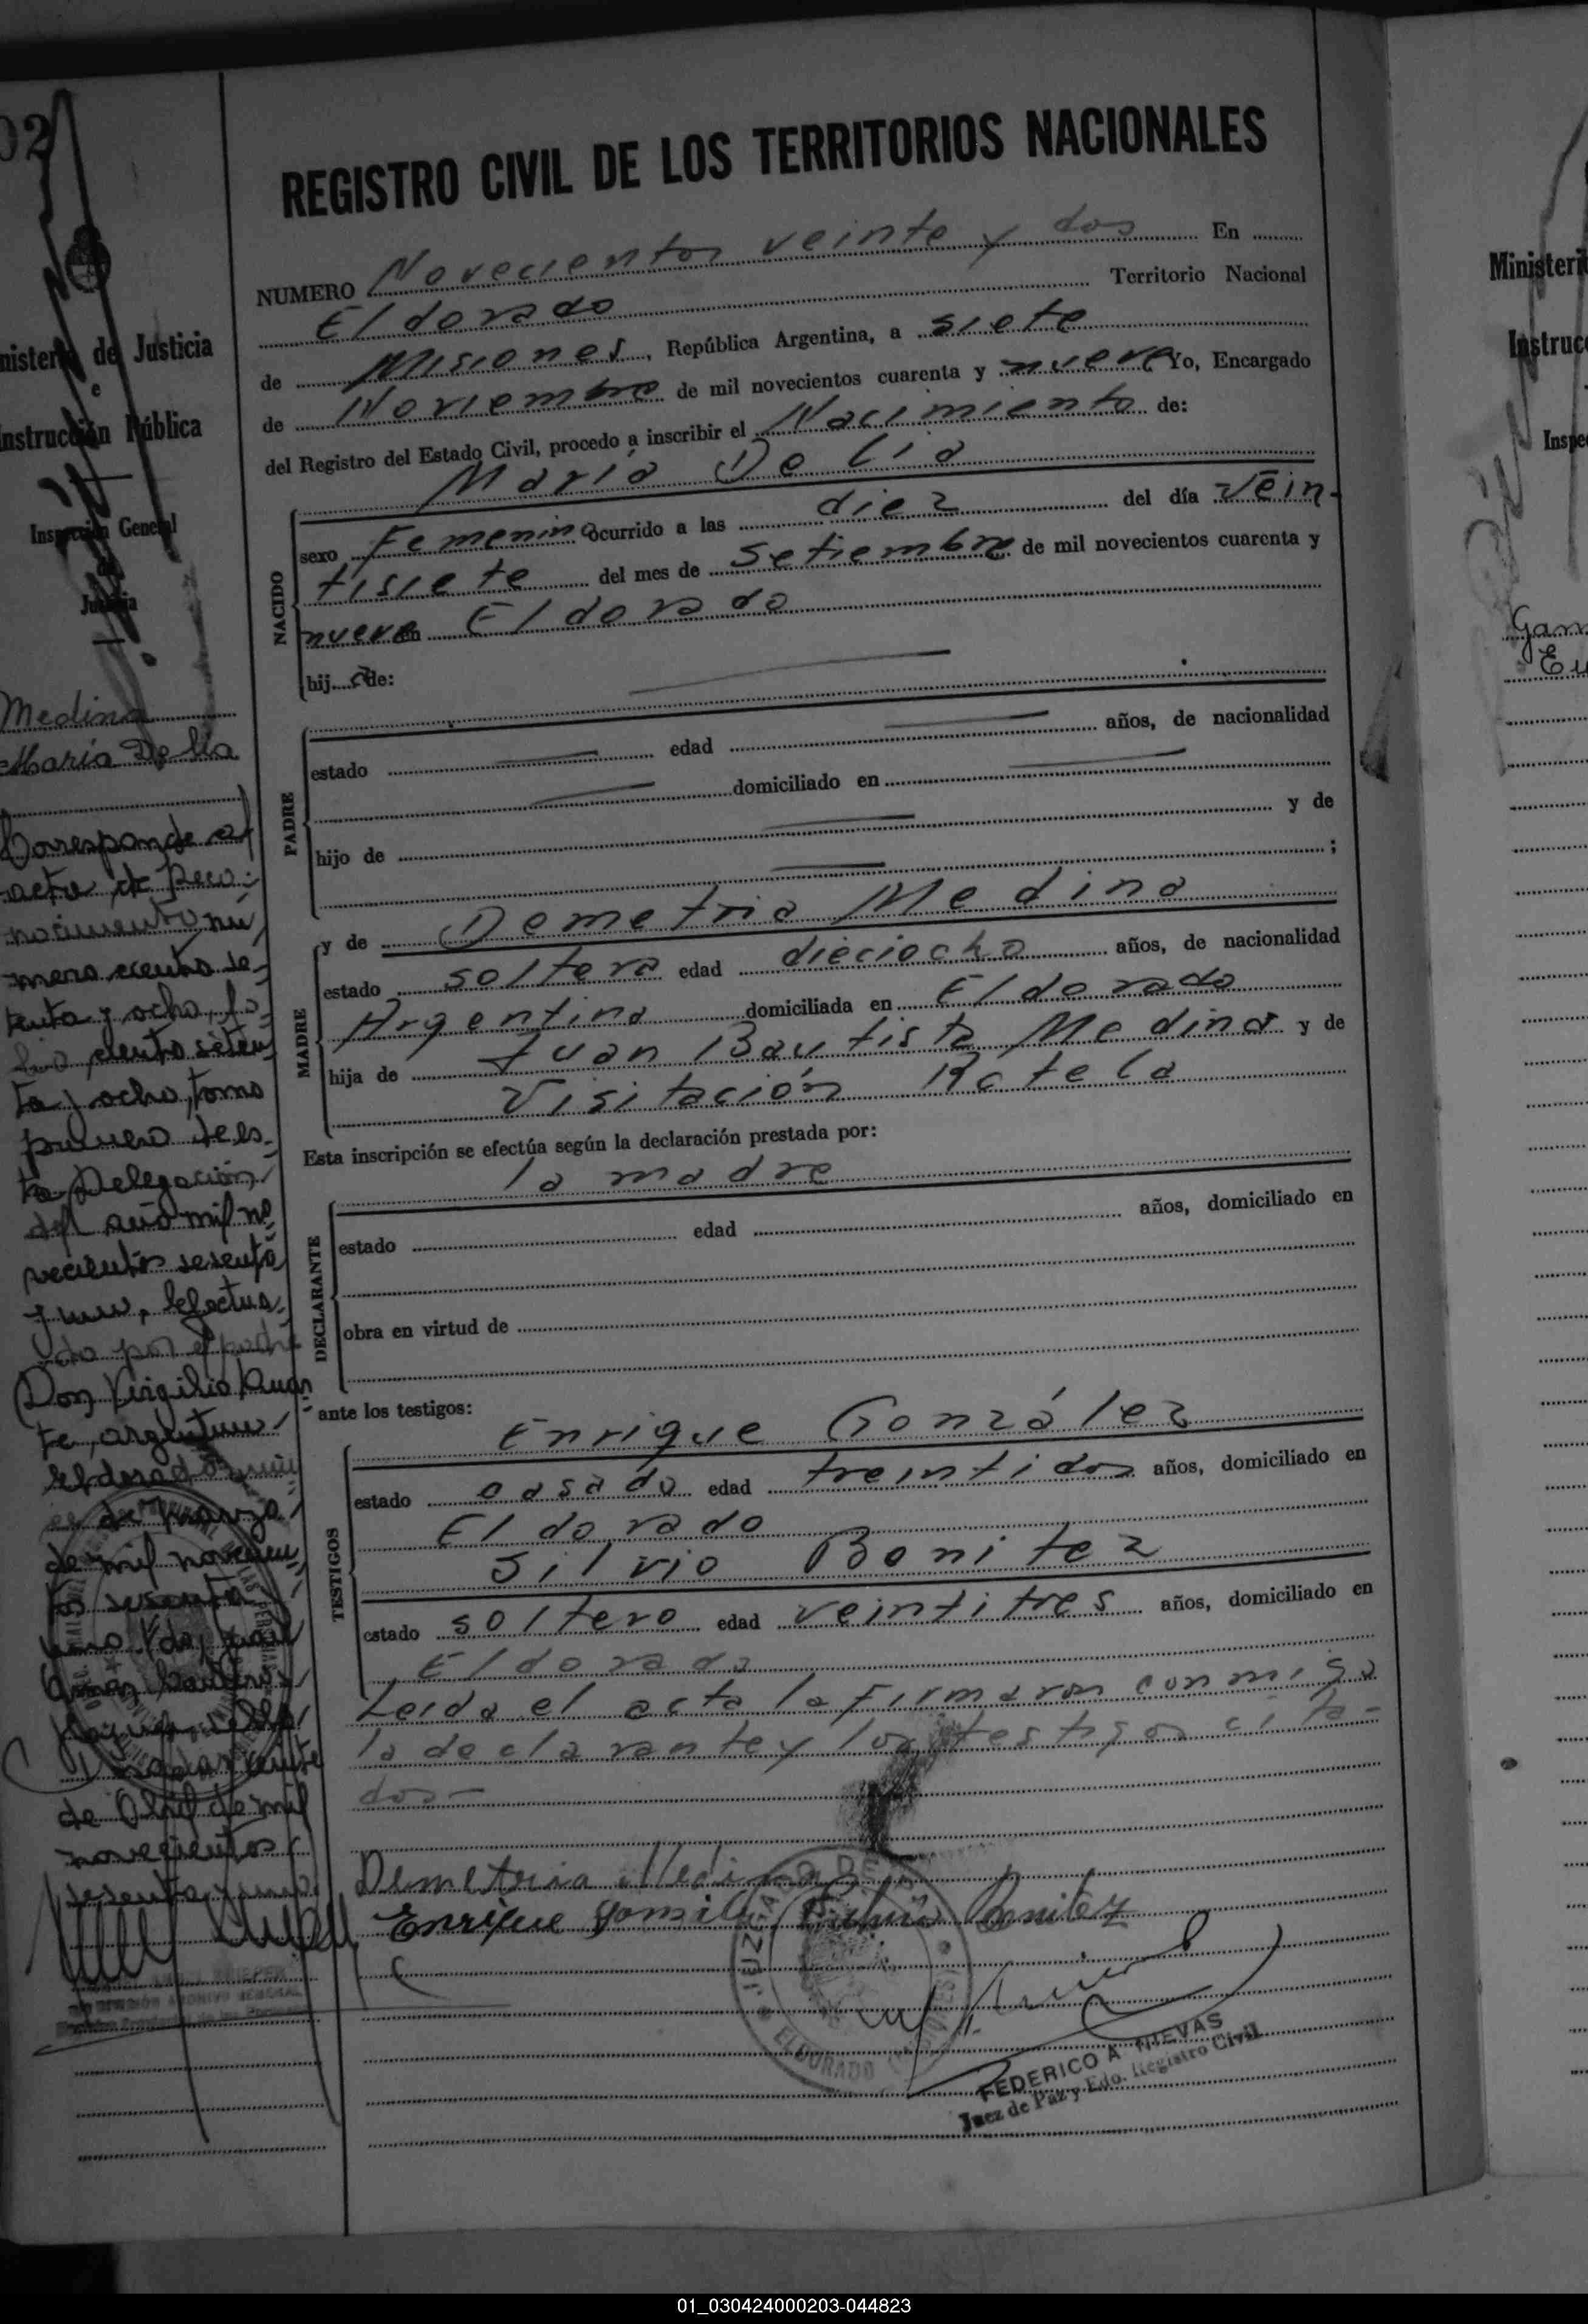 02
REGISTRO CIVIL DE LOS TERRITORIOS NACIONALES
NUMERO Novecientos veinte y dos En
Eldorado Territorio Nacional
de Misiones, República Argentina, a siete
de Noviembre de mil novecientos cuarenta y nueve Yo, Encargado
del Registro del Estado Civil, procedo a inscribir el Nacimiento de:
María Delia
NACIDO
sexo Femenino ocurrido a las diez del día vein-
tisiete del mes de Setiembre de mil novecientos cuarenta y
nueve en Eldorado
hij a de:
PADRE
estado edad años, de nacionalidad
domiciliado en
hijo de y de
;
y de Demetria Medina
MADRE
estado soltera edad dieciocho años, de nacionalidad
Argentina domiciliada en Eldorado
hija de Juan Bautista Medina y de
Visitación Rotela
Esta inscripción se efectúa según la declaración prestada por:
la madre
DECLARANTE
estado edad años, domiciliado en
obra en virtud de
ante los testigos:
Enrique González
TESTIGOS
estado casado edad treintidos años, domiciliado en
Eldorado
Silvio Benitez
estado soltero edad veintitres años, domiciliado en
Eldorado
Leida el acta la Firmaron conmigo
la declarante y los testigos cita-
dos-
Demetria Medina
Enrique Gonzalez Silvio Benitez
JUZGADO DE PAZ
ELDORADO (MISIONES)
FEDERICO A NIEVAS
Juez de Paz y Edo. Registro Civil
nisterio de Justicia
e
Instrucción Pública
Inspección General
de
Justicia
Medina
María Delia
Corresponde al
acta de Reco-
nocimiento nú
mero ciento se-
tenta y ocho, fo-
lio, ciento seten
ta y ocho, tomo
primero de es-
ta Delegación
del año mil no
vecientos sesenta
y uno, efectua-
do por el padre
Don Virgilio Duar
te, argentino
de marzo
de mil novecien
tos sesenta
uno
de Abril de mil
novecientos
sesenta y uno
Ministeri
Instruc
Inspe
01_030424000203-044823